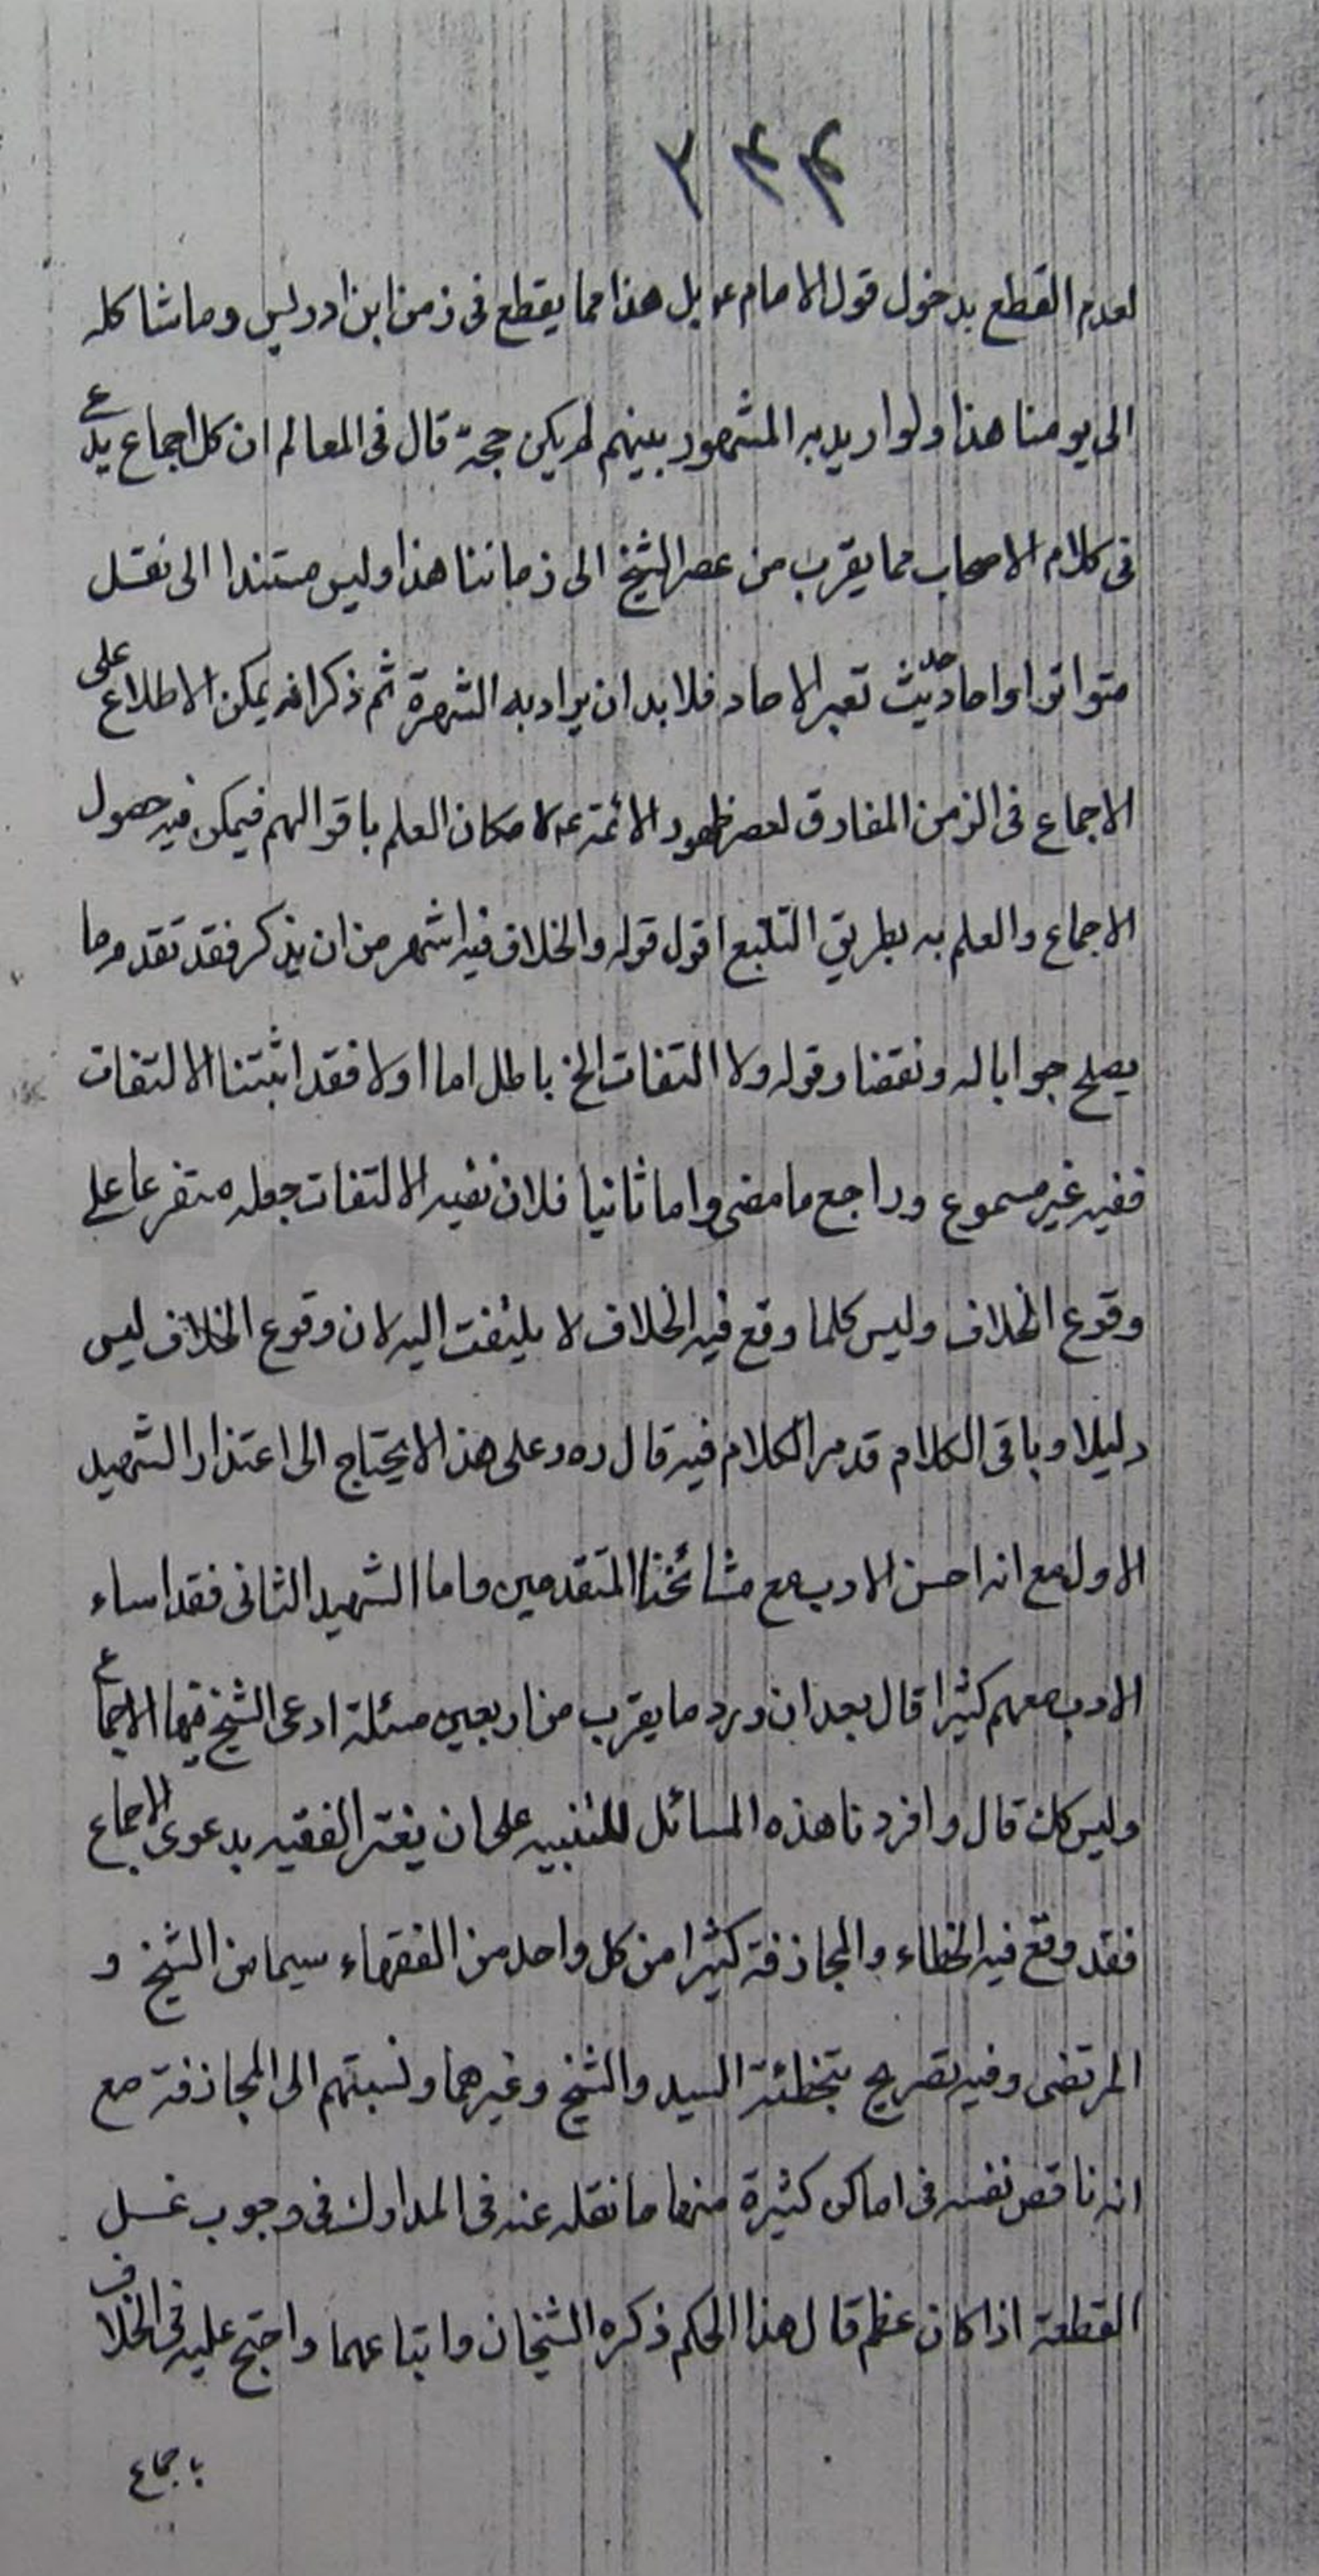 ۲۴۴
لعدم القطع بدخول قول الامام ع بل هذا مما يقطع فى زمن ابن ادريس وما شاكله
الى يومنا هذا ولو اريد به المشهور بينهم لم يكن حجة قال فى المعالم ان كل اجماع يدعى
فى كلام الاصحاب مما يقرب من عصر الشيخ الى زماننا هذا وليس مستندا الى نقل
متواتر او احاد حيث تعبر الاحاد فلا بد ان يراد به الشهرة ثم ذكر انه يمكن الاطلاع على
الاجماع فى الزمن المقارن لعصر ظهور الائمة ع لامكان العلم باقوالهم فيمكن فيه حصول
الاجماع والعلم به بطريق التتبع اقول قوله والخلاف فيه اشهر من ان يذكر فقد تقدم ما
يصلح جوابا له ونقضا وقوله ولا التفات الخ باطل اما اولا فقد اثبتنا الالتفات
ففيه غير مسموع وراجع ما مضى واما ثانيا فلان نفيه الالتفات جعله متفرعا على
وقوع الخلاف وليس كلما وقع فيه الخلاف لا يلتفت اليه لان وقوع الخلاف ليس
دليلا وباقى الكلام قد مر الكلام فيه قال ره وعلى هذا لا يحتاج الى اعتذار الشهيد
الاول مع انه احسن الادب مع مشائخنا المتقدمين واما الشهيد الثانى فقد اساء
الادب معهم كثيرا قال بعد ان ورد ما يقرب من اربعين مسئلة ادعى الشيخ فيها الاجماع
وليس كك قال وافردنا هذه المسائل للتنبيه على ان يغتر الفقيه بدعوى الاجماع
فقد وقع فيه الخطاء والمجازفة كثيرا من كل واحد من الفقهاء سيما من الشيخ و
المرتضى وفيه تصريح بتخطئة السيد والشيخ وغيرهما ونسبتهم الى المجازفة مع
انه ناقض نفسه فى اماكن كثيرة منها ما نقله عنه فى المدارك فى وجوب غسل
القطعة اذا كان عظم قال هذا الحكم ذكره الشيخان واتباعهما واحتج عليه فى الخلاف
باجماع